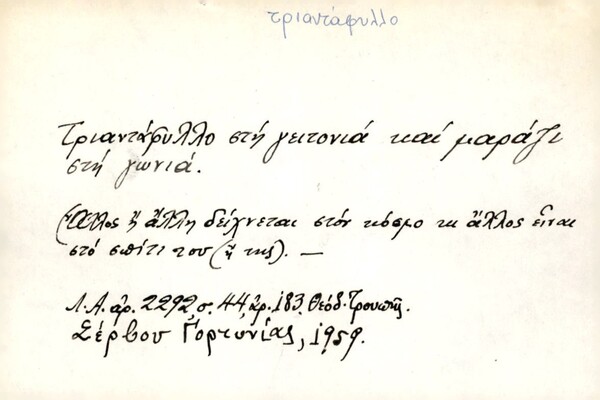 τριαντάφυλλο
Τριαντάφυλλο στή γειτονιά καί μαράζι
στή γωνιά.
(Ἄλλος ἤ ἄλλη δείχνεται στόν κόσμο κι ἄλλος εἶναι
στό σπίτι του (ἤ της). —
Λ.Α. ἀρ. 2292, σ. 44, ἀρ. 183. Θεόδ. Τρουπῆς.
Σέρβου Γορτυνίας, 1959.